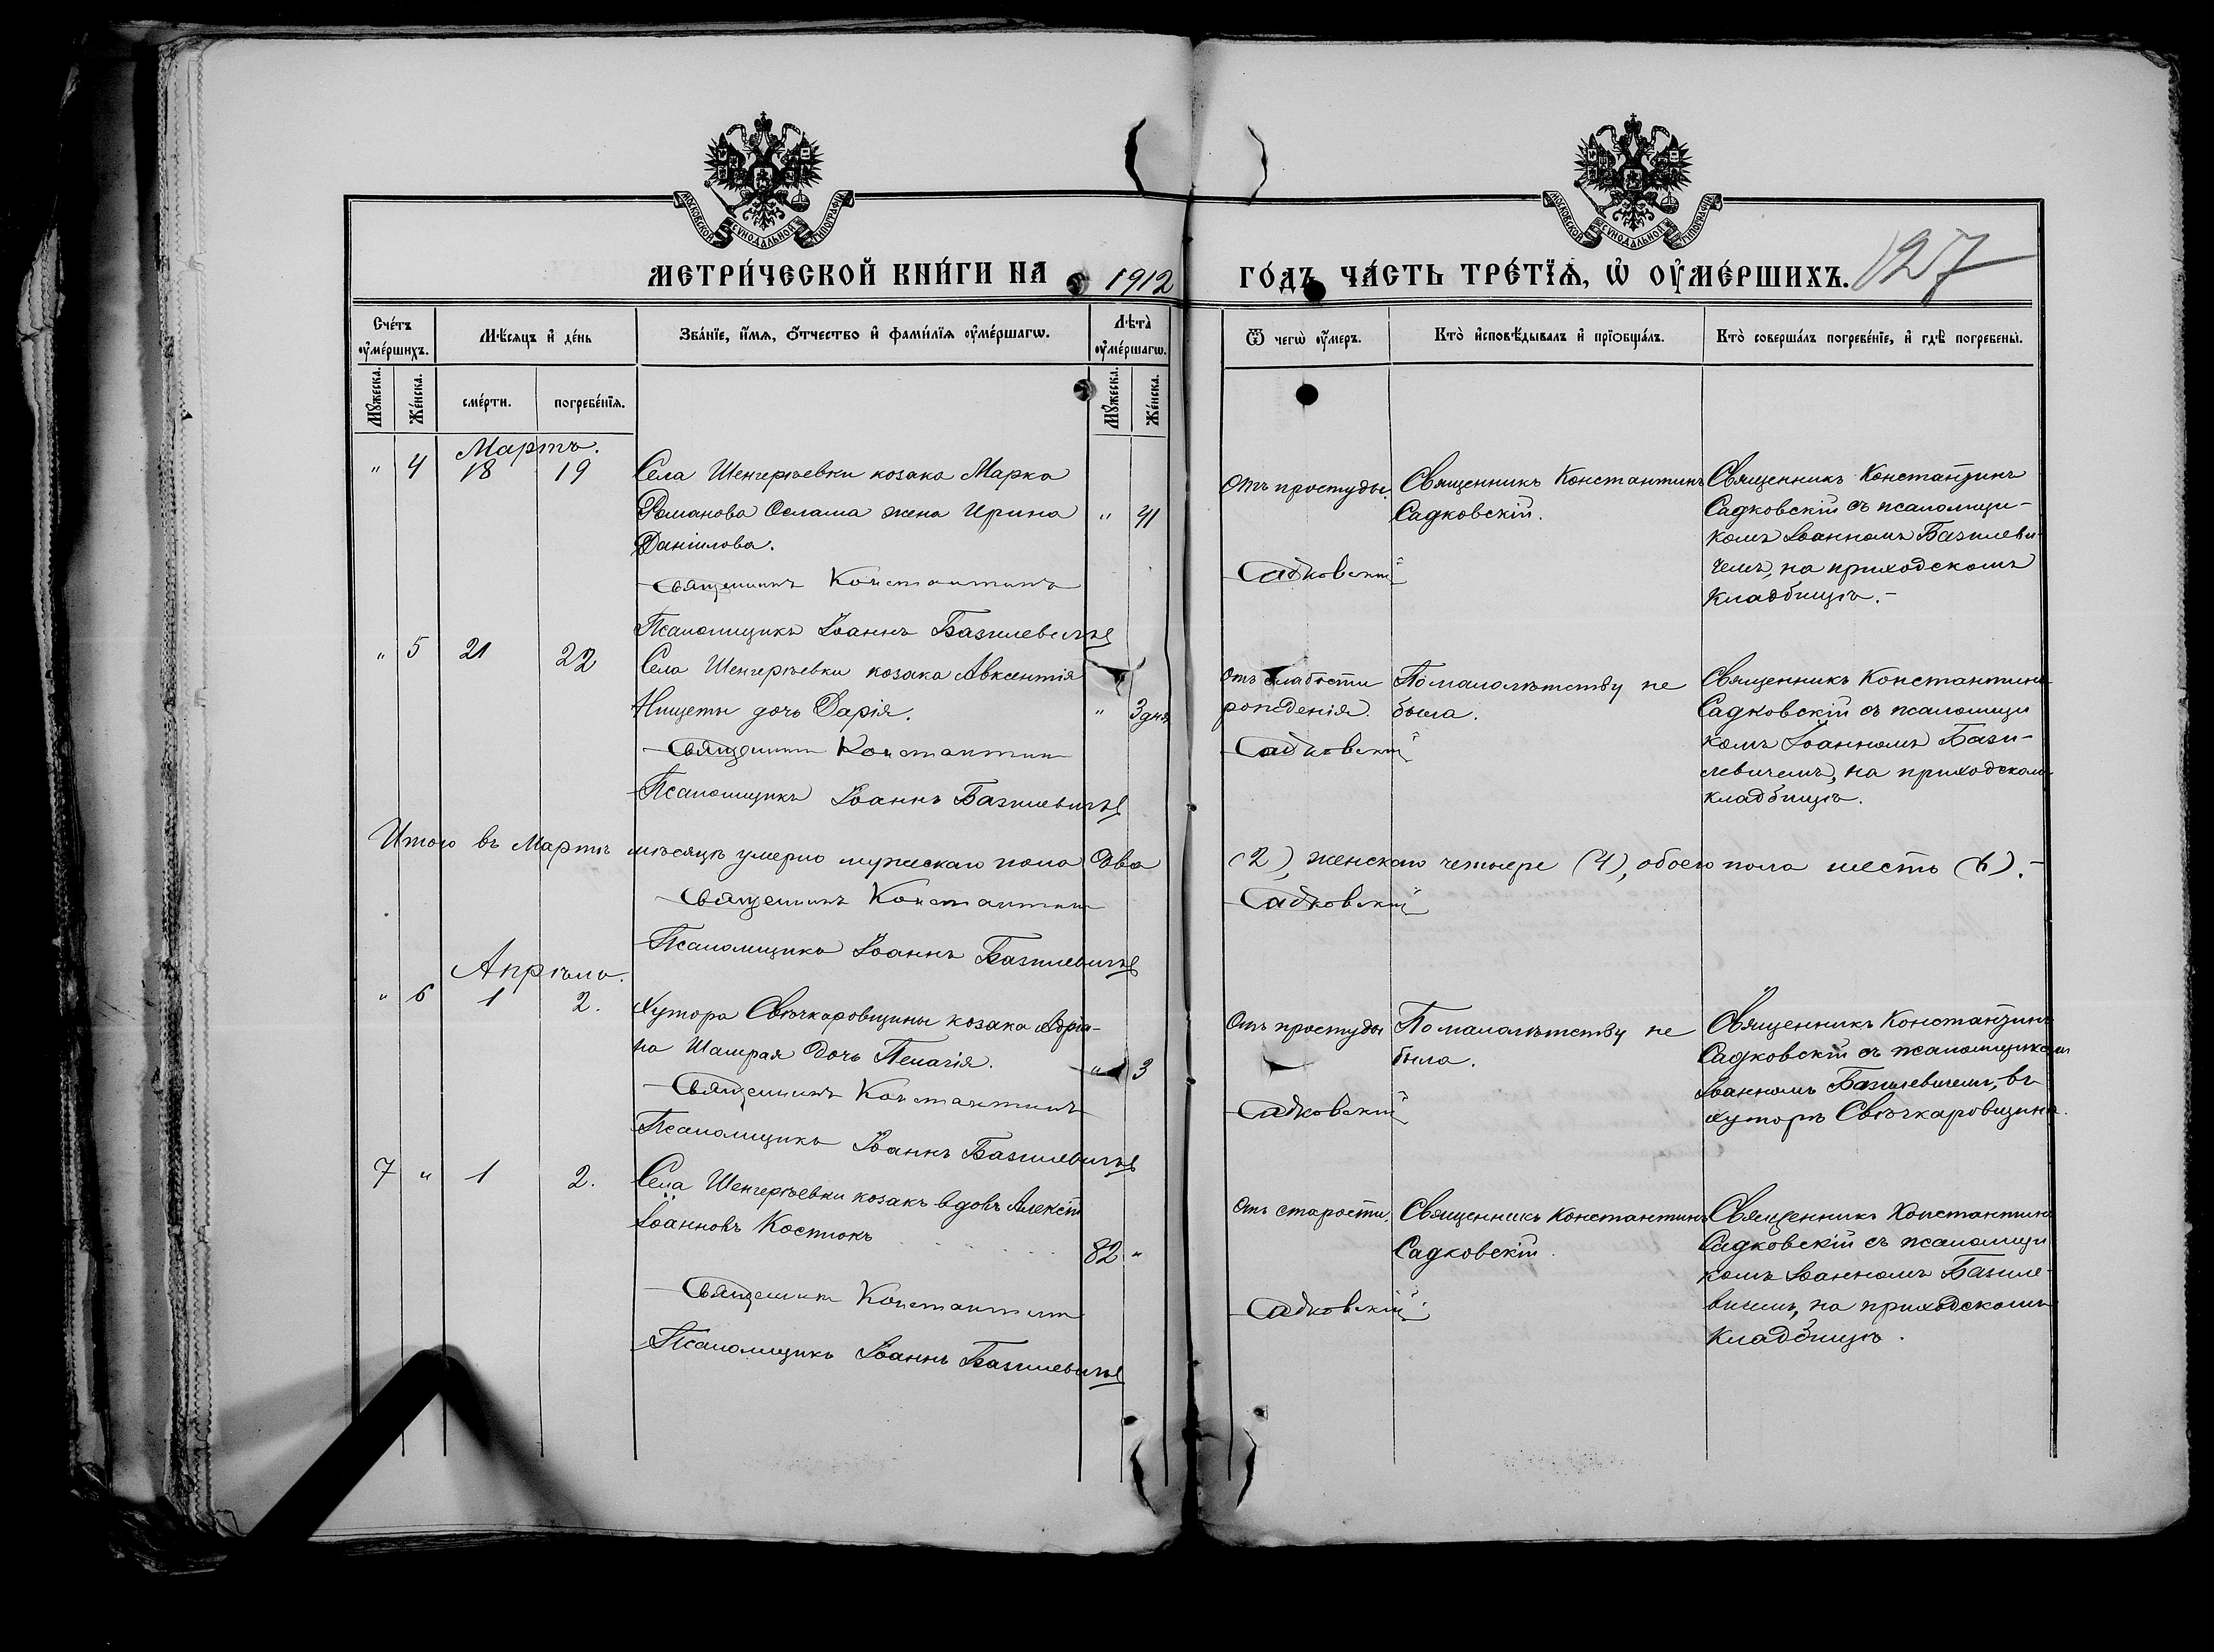 МОСКОВСКОЙ СѴНОДАЛЬНОЙ ТИПОГРАФІИ
МОСКОВСКОЙ СѴНОДАЛЬНОЙ ТИПОГРАФІИ
МЕТРИ́ЧЕСКОЙ КНИ́ГИ НА 1912
ГО́ДЪ ЧА́СТЬ ТРЕ́ТЇѦ, Ѡ҆ ОУ҆МЕ́РШИХЪ. 127
Сче́тъ оу҆ме́ршихъ.
Мѣ́сяцъ и҆ де́нь
Зва́нїе, и҆́мѧ, ѻ҆́тчество и҆ фами́лїѧ оу҆ме́ршагѡ.
Лѣта̀ оу҆ме́ршагѡ.
Ѿ чегѡ̀ оу҆́меръ.
Кто̀ и҆сповѣ́дывалъ и҆ прїѻбща́лъ.
Кто̀ соверша́лъ погребе́нїе, и҆ гдѣ̀ погребены̀.
Мꙋ́жеска.
Же́нска.
сме́рти.
погребе́нїѧ.
Мꙋ́жеска.
Же́нска.
Мартъ.
" 4 18 19 Села Шенгерѣевки козака Марка
Романова Ослама жена Ирина " 41
Даніилова.
Священникъ Константинъ
Псаломщикъ Іоаннъ Базилевичъ
Отъ простуды.
Священникъ Константинъ
Садковскій.
Священникъ Константинъ
Садковскій съ псаломщи-
комъ Іоанномъ Базилеви-
чемъ, на приходскомъ
кладбищѣ.-
Садковскій
" 5 21 22 Села Шенгерѣевки козака Авксентія
Нищеты дочь Дарія. " 3 дня
Священникъ Константинъ
Псаломщикъ Іоаннъ Базилевичъ
Отъ слабости
рожденія.
По малолѣтству не
была.
Священникъ Константинъ
Садковскій съ псаломщи
комъ Іоанномъ Бази-
левичемъ, на приходскомъ
кладбищѣ.
Садковскій
Итого въ Мартѣ мѣсяцѣ умерло мужескаго пола Два (2), женскаго четыре (4), обоего пола шесть (6).-
Священникъ Константинъ Садковскій
Псаломщикъ Іоаннъ Базилевичъ
Апрѣль.
" 6 1 2. Хутора Свѣчкаровщины козака Адріа-
на Шамрая дочь Пелагія. " 3
Священникъ Константинъ
Псаломщикъ Іоаннъ Базилевичъ
Отъ простуды
По малолѣтству не
была.
Священникъ Константинъ
Садковскій съ псаломщикомъ
Іоанномъ Базилевичемъ, въ
хуторѣ Свѣчкаровщина.
Садковскій
7 " 1 2. Села Шенгерѣевки козакъ вдовъ Алексій
Іоанновъ Костюкъ 82 "
Священникъ Константинъ
Псаломщикъ Іоаннъ Базилевичъ
Отъ старости.
Священникъ Константинъ
Садковскій.
Священникъ Константинъ
Садковскій съ псаломщи
комъ Іоанномъ Базиле-
вичемъ, на приходскомъ
кладбищѣ.
Садковскій